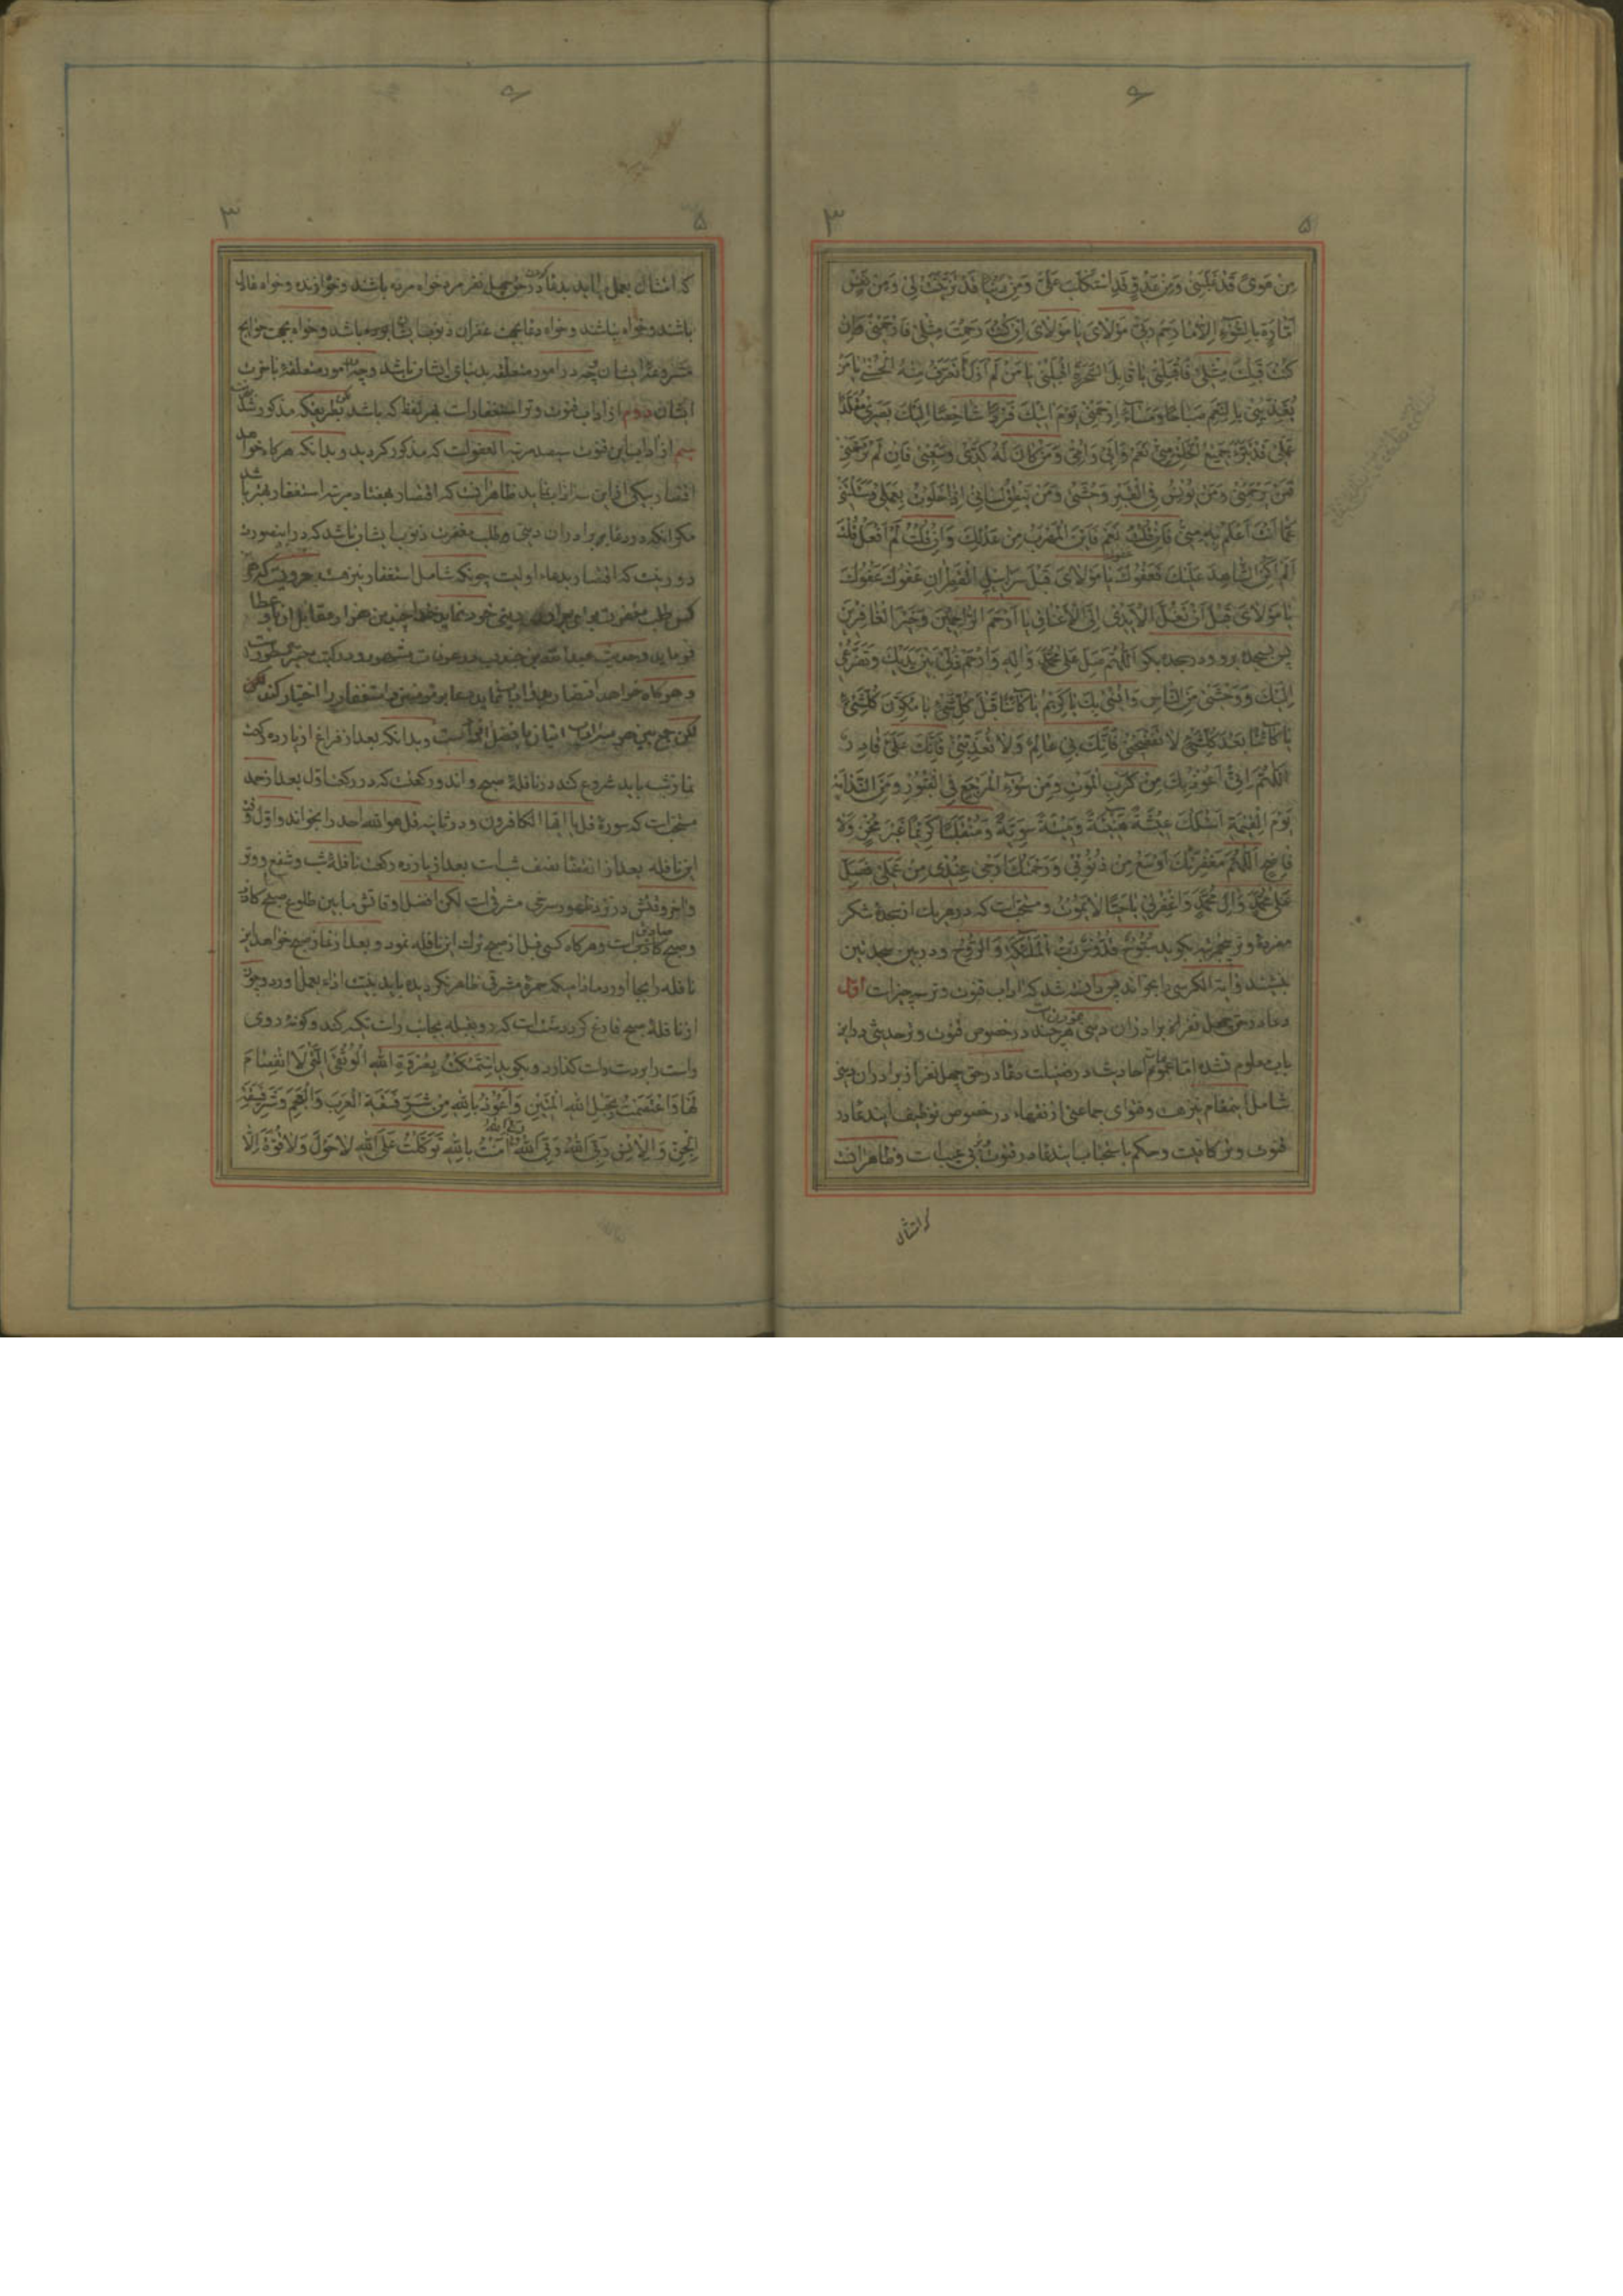 مِنْ هَوىً قَدْ غَلَبَنِی وَمِنْ عَدُوٍّ قَدِ اسْتَكْلَبَ عَلَیَّ وَمِنْ دُنْیَا قَدْ تَزَیَّنَتْ لِی وَمِنْ نَفْسٍ
اَمّارَةٍ بِالسُّوۤءِ اِلّا مَا رَحِمَ رَبِّی مَوْلَایَ یَا مَوْلَایَ اِنْ كُنْتَ رَحِمْتَ مِثْلِی فَارْحَمْنِی وَاِنْ
كُنْتَ قَبِلْتَ مِثْلِی فَاقْبَلْنِی یَا قَابِلَ السَّحَرَةِ اقْبَلْنِی یَا مَنْ لَمْ اَزَلْ اَتَعَرَّفُ مِنْهُ الْحُسْنٰی یَا مَنْ
یُغَذِّیْنِی بِالنِّعَمِ صَبَاحًا وَمَسَاۤءً اِرْحَمْنِی یَوْمَ اٰتِیْكَ فَرْدًا شَاخِصًا اِلَیْكَ بَصَرِی مُقَلَّدًا
عَمَلِی قَدْ تَبَرَّءَ جَمِیْعُ الْخَلْقِ مِنِّی نَعَمْ وَاَبِی وَاُمِّی وَمَنْ كَانَ لَهُ كَدِّی وَسَعْیِی فَاِنْ لَمْ تَرْحَمْنِی
فَمَنْ یَرْحَمُنِی وَمَنْ یُوْنِسُ فِی الْقَبْرِ وَحْشَتِی وَمَنْ یُنْطِقُ لِسَانِی اِذَا خَلَوْتُ بِعَمَلِی وَسَئَلْتَنِی
عَمَّا اَنْتَ اَعْلَمُ بِهِ مِنِّی فَاِنْ قُلْتُ نَعَمْ فَاَیْنَ الْمَهْرَبُ مِنْ عَدْلِكَ وَاِنْ قُلْتُ لَمْ اَفْعَلْ قُلْتَ
اَلَمْ اَكُنِ الشَّاهِدَ عَلَیْكَ فَعَفْوَكَ یَا مَوْلَایَ قَبْلَ سَرَابِیْلِ الْقَطِرَانِ عَفْوَكَ عَفْوَكَ
یَا مَوْلَایَ قَبْلَ اَنْ تُغَلَّ الْاَیْدِی اِلَی الْاَعْنَاقِ یَا اَرْحَمَ الرَّاحِمِیْنَ وَخَیْرَ الْغَافِرِیْنَ
پس بسجده برود و در سجده بگوید اَللّٰهُمَّ صَلِّ عَلٰی مُحَمَّدٍ وَاٰلِهِ وَارْحَمْ ذُلِّی بَیْنَ یَدَیْكَ وَتَضَرُّعِی
اِلَیْكَ وَوَحْشَتِی مِنَ النَّاسِ وَاُنْسِی بِكَ یَا كَرِیْمُ یَا كَاۤئِنًا قَبْلَ كُلِّ شَیْءٍ یَا مُكَوِّنَ كُلِّ شَیْءٍ
یَا كَاۤئِنًا بَعْدَ كُلِّ شَیْءٍ لَا تَفْضَحْنِی فَاِنَّكَ بِی عَالِمٌ وَلَا تُعَذِّبْنِی فَاِنَّكَ عَلَیَّ قَادِرٌ
اَللّٰهُمَّ اِنِّی اَعُوْذُ بِكَ مِنْ كَرْبِ الْمَوْتِ وَمِنْ سُوْۤءِ الْمَرْجِعِ فِی الْقُبُوْرِ وَمِنَ النَّدَامَةِ
یَوْمَ الْقِیٰمَةِ اَسْئَلُكَ عِیْشَةً هَنِیْئَةً وَمِیْتَةً سَوِیَّةً وَمُنْقَلَبًا كَرِیْمًا غَیْرَ مُخْزٍ وَلَا
فَاضِحٍ اَللّٰهُمَّ مَغْفِرَتُكَ اَوْسَعُ مِنْ ذُنُوْبِی وَرَحْمَتُكَ اَرْجٰی عِنْدِی مِنْ عَمَلِی فَصَلِّ
عَلٰی مُحَمَّدٍ وَاٰلِ مُحَمَّدٍ وَاغْفِرْ لِی یَا حَیًّا لَا یَمُوْتُ و مستحبّ است که در هر یك از سجدهٔ شکر
مفردهٔ و پنج مرتبه بگوید سُبُّوْحٌ قُدُّوْسٌ رَبُّ الْمَلٰۤئِكَةِ وَالرُّوْحِ و در بین سجدتین
بنشیند و آیة الکرسی را بخواند پس دانسته شد که آداب قنوت وتر سه چیز است اوّل
دعا در حق چهل نفر از برادران دینی هر چند در خصوص قنوت وتر حدیثی در این
باب معلوم نشده امّا عموم احادیث در فضیلت دعا در حق چهل نفر از برادران دینی
شامل اینمقام نیز هست و فتوای جماعتی از فقهاء در خصوص توظیف ایندعا در
قنوت وتر کافیست و حکم باستحباب ایندعا در قنوت بی عیب است و ظاهر آنست
که امتثال
که امتثال بعمل میآید بدعا کردن در حق چهل نفر مرد خواه مرده باشند و خواه زنده و خواه فامیل
باشند و خواه نباشند و خواه دعا بجهت غفران ذنوب ایشان بوده باشد و خواه بجهت حوایج
مشروعه ایشان چه در امور متعلقه بدنیای ایشان باشد و چه امور متعلقهٔ بآخرت
ایشان دوم از آداب قنوت وتر استغفار است بهر لفظ که باشد بطریقیکه مذکور شد
سیم از آداب این قنوت سیصد مرتبه العفو است که مذکور گردید و بدانکه هرگاه خواهد
اقتصار بیکی از این سه آداب نماید ظاهر آنست که اقتصار بهفتاد مرتبه استغفار بهتر باشد
مگر آنکه در دعا بر برادران دینی طلب مغفرت ذنوب ایشان باشد که در اینصورت
دور نیست که اقتصار بدعاء اولیست چونکه شامل استغفار نیز هست
و هرگاه خواهد اقتصار استغفار را اختیار کند
و بدانکه بعد از فراغ از یازده رکعت
نماز شب باید شروع کند در نافلهٔ صبح و آن دو رکعت که در رکعت اوّل بعد از حمد
مستحبّ است که سورهٔ قل یا ایها الکافرون و در ثانیه قل هو اللّه احد را بخواند و اوّل وقت
این نافله بعد از انقضا نصف شب است بعد از یازده رکعت نافلهٔ شب و شفع و وتر
و آخر وقتش در نزد ظهور سرخی مشرقی است لکن افضل اوقاتش ما بین طلوع صبح کاذب
و صبح صادق است و هرگاه کسی قبل از صبح ترك این نافله نمود و بعد از نماز صبح خواهد این
نافله را بجا آورد مادامیکه حمرهٔ مشرقی ظاهر نگردیده باید بنیت اداء بعمل آورد و چون
از نافلهٔ صبح فارغ گردد سنت است که رو بقبله بجانب راست تکیه کند و گونهٔ روی
راست را بر دست راست گذارد و بگوید اِسْتَمْسَكْتُ بِعُرْوَةِ اللّٰهِ الْوُثْقٰی الَّتِی لَا انْفِصَامَ
لَهَا وَاعْتَصَمْتُ بِحَبْلِ اللّٰهِ الْمَتِیْنِ وَاَعُوْذُ بِاللّٰهِ مِنْ شَرِّ فَسَقَةِ الْعَرَبِ وَالْعَجَمِ وَشَرِّ فَسَقَةِ
الْجِنِّ وَالْاِنْسِ رَبِّیَ اللّٰهُ رَبِّیَ اللّٰهُ رَبِّیَ اللّٰهُ اٰمَنْتُ بِاللّٰهِ تَوَكَّلْتُ عَلَی اللّٰهِ لَا حَوْلَ وَلَا قُوَّةَ اِلَّا